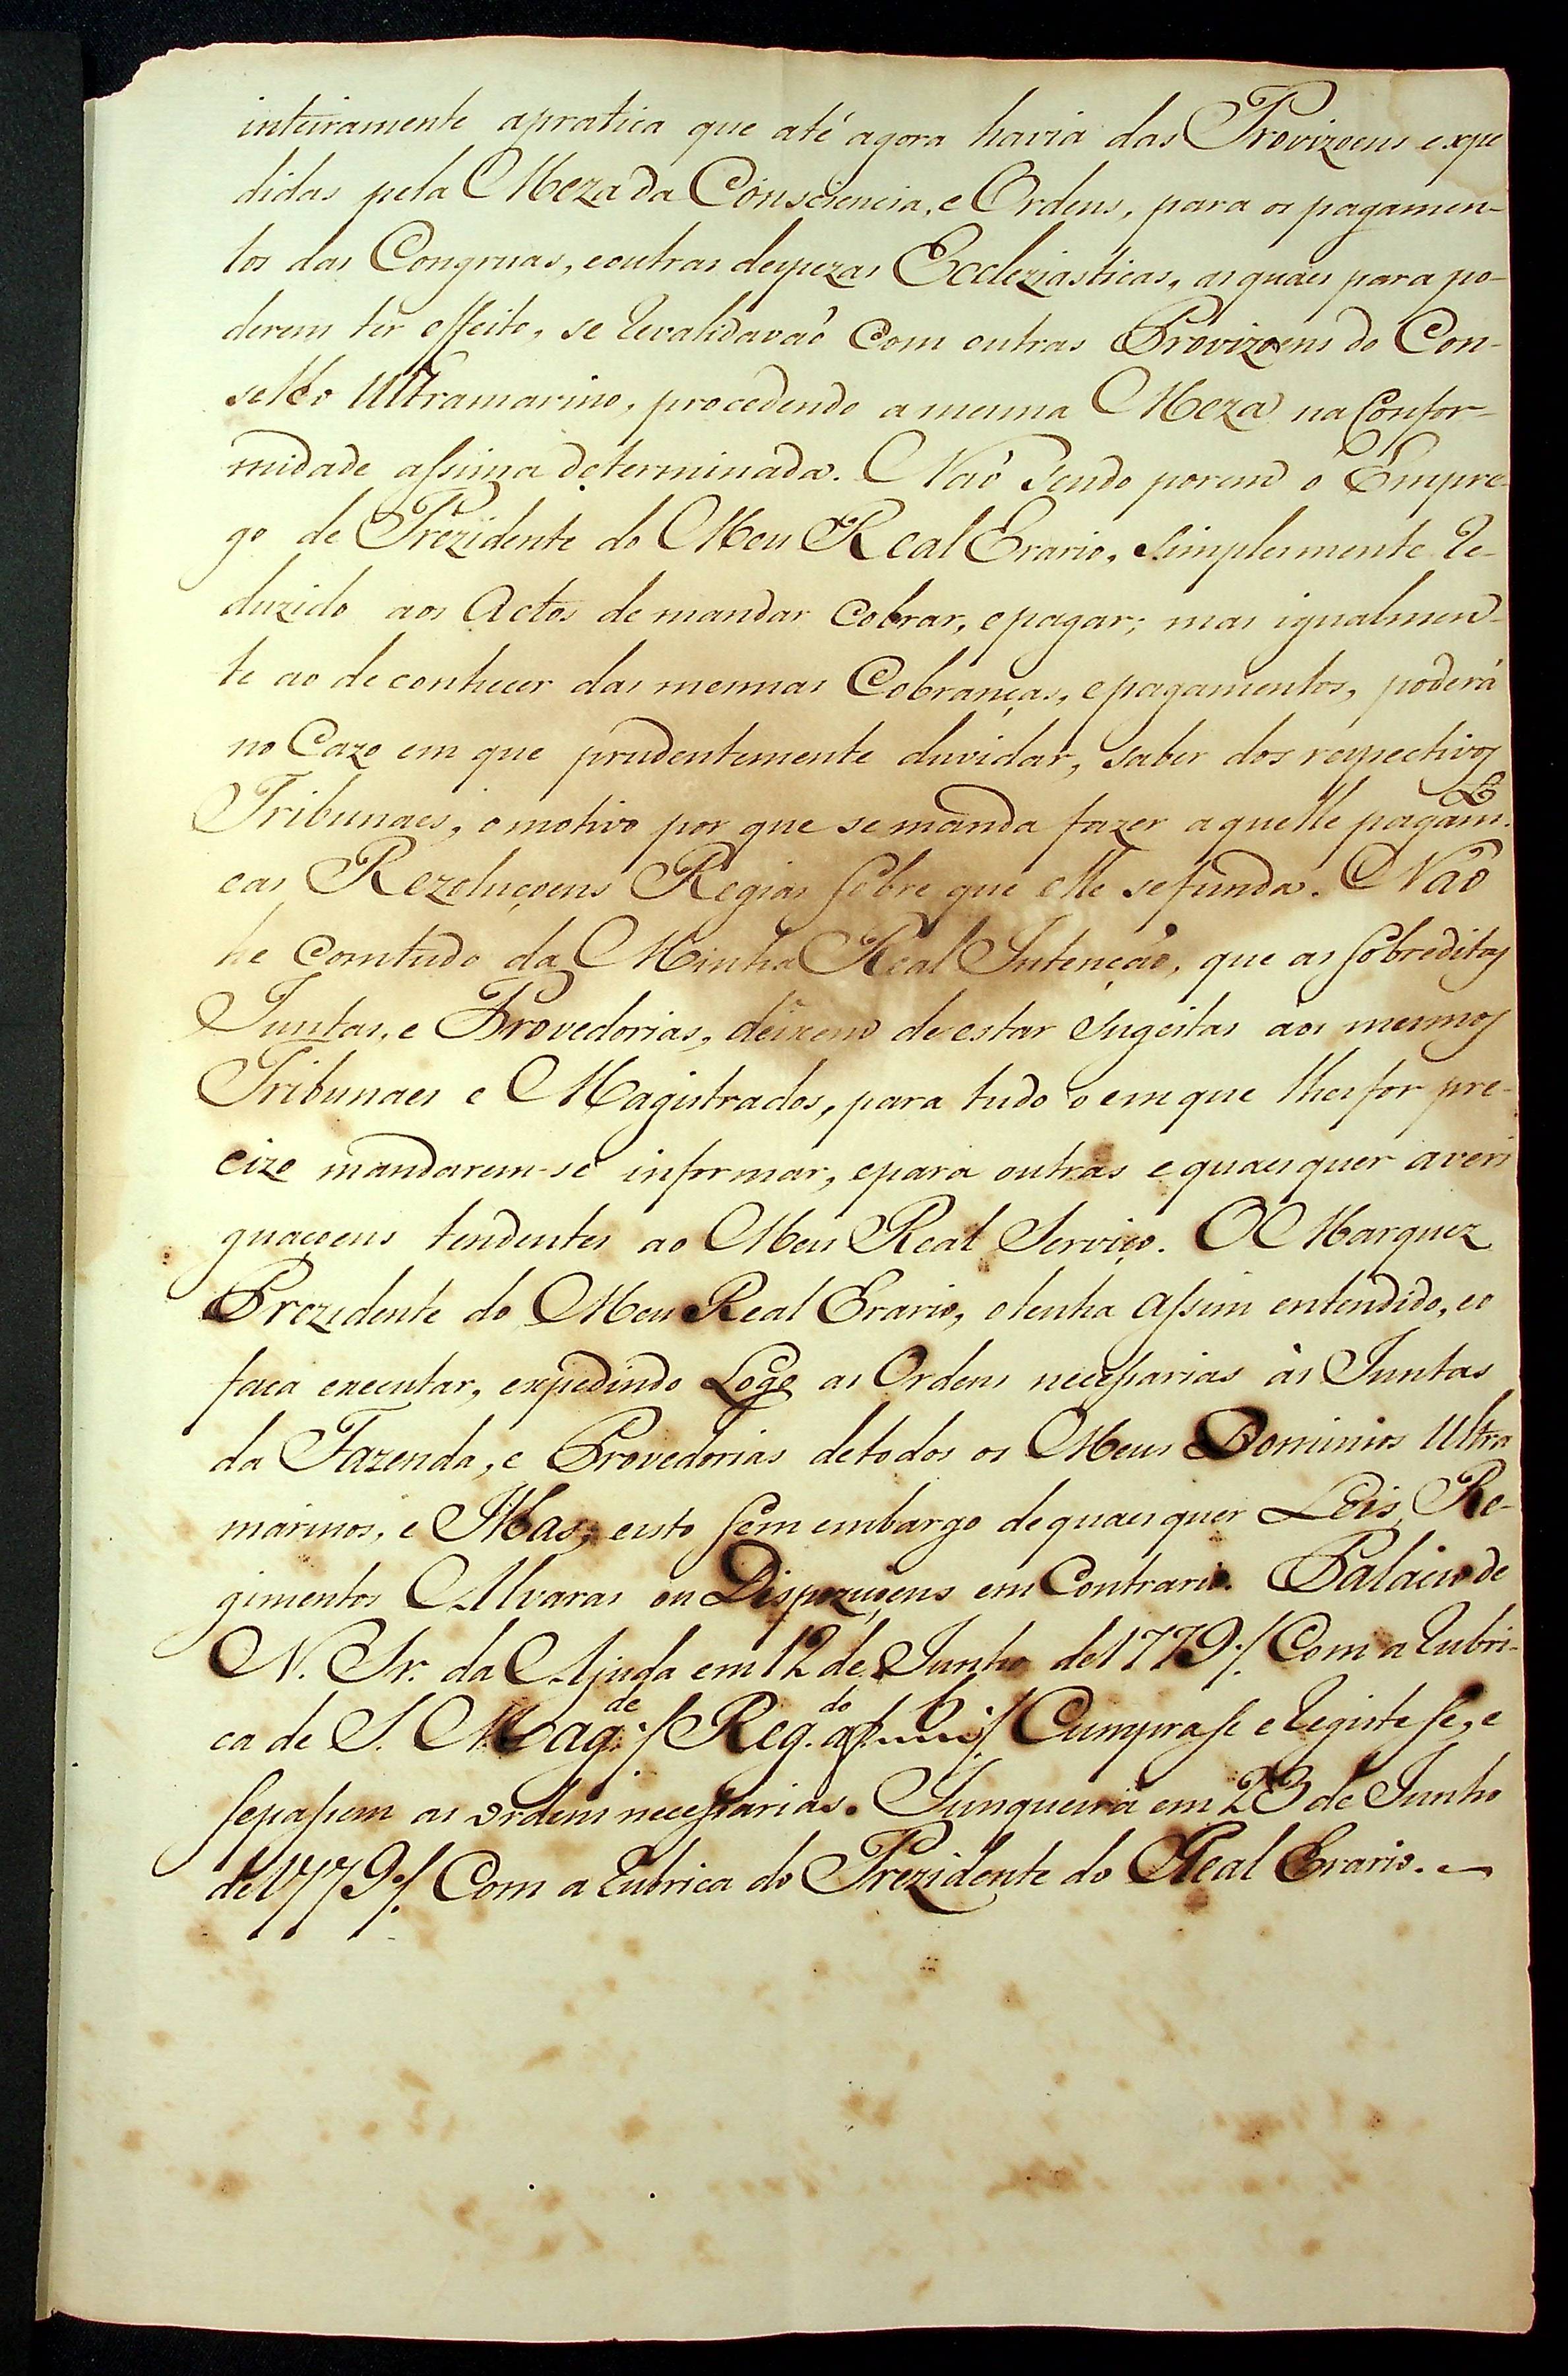 inteiramente apratica que até agora havia das Provizoens expe
didas pela Meza da Consciencia, e Ordens, para os pagamen-
tos das Congruas, eoutras despezas Eccleziasticas, as quaes para po-
derem ter effeito, se revalidavaõ Com outras Provizoens do Con-
selho Ultramarino, procedendo a mesma Meza na Confor-
midade assima determinada. Naõ Sendo porem o Empre-
go de Prezidente do Meu Real Erario, Simplesmente re-
duzido aos Actos de mandar Cobrar, e pagar; mas igualmen-
te ao de conhecer das mesmas Cobranças, e pagamentos, poderá
no Cazo em que prudentemente duvidar, Saber dos respectivos
Tribunaes, o motivo por que se manda fazer aquelle pagam.to
eas Rezoluçoens Regias Sobre que elle sefunda. Naõ
he Comtudo da Minha Real Intençaõ, que as Sobreditas
Juntas, e Provedorias, deixem de estar Sugeitas aos mesmos
Tribunaes e Magistrados, para tudo o em que lhes for pre-
cizo mandarem-se informar, e para outras e quaes quer averi
guaçoens tendentes ao Meu Real Serviço. O Marquez
Prezidente do Meu Real Erario, o tenha assim entendido, eo
faca executar, expedindo Logo as Ordens necessarias às Juntas
da Fazenda, e Provedorias detodos os Meus Dominios Ultra
marinos, e Ilhas, eisto Sem embargo de quaes quer Leis, Re-
gimentos Alvaras ou Dispoziçoens em Contrario. Palacio de
N. Sr. da Ajuda em 12 de Junho de 1779 ./. Com a rubri-
ca de S. Mag.de ./. Reg.do ./. Cumprase e registese, e
sepassem as Ordens necessarias. Junqueira em 23 de Junho
de 1779 ./. Com a rubrica do Prezidente do Real Erario.